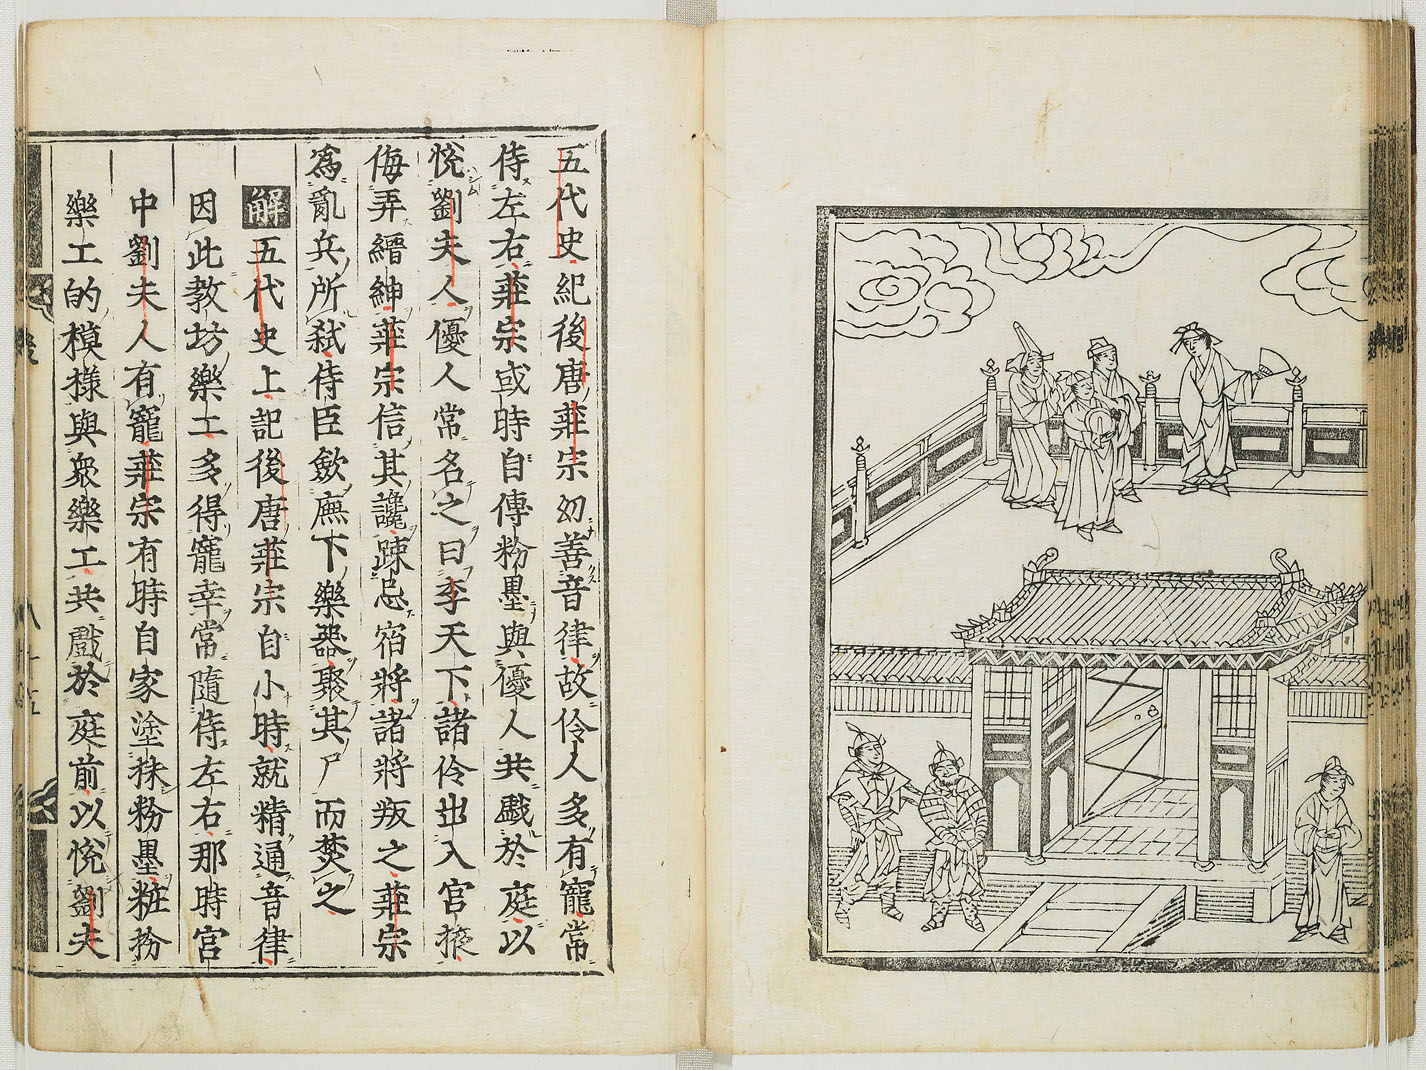 五代史紀後唐莊宗幼善音律故伶人多有寵常
侍左右莊宗或時自傅粉墨與優人共戲於庭以
悅劉夫人優人常名之曰李天下諸伶出入宮掖
侮弄縉紳莊宗信其讒疎忌宿將諸將叛之莊宗
為亂兵所弒侍臣斂廡下樂器聚其尸而焚之
解五代史上記後唐莊宗自小時就精通音律
因此教坊樂工多得寵幸常隨侍左右那時宮
中劉夫人有寵莊宗有時自家塗抹粉墨粧扮
樂工的模樣與衆樂工共戲於庭前以悅劉夫